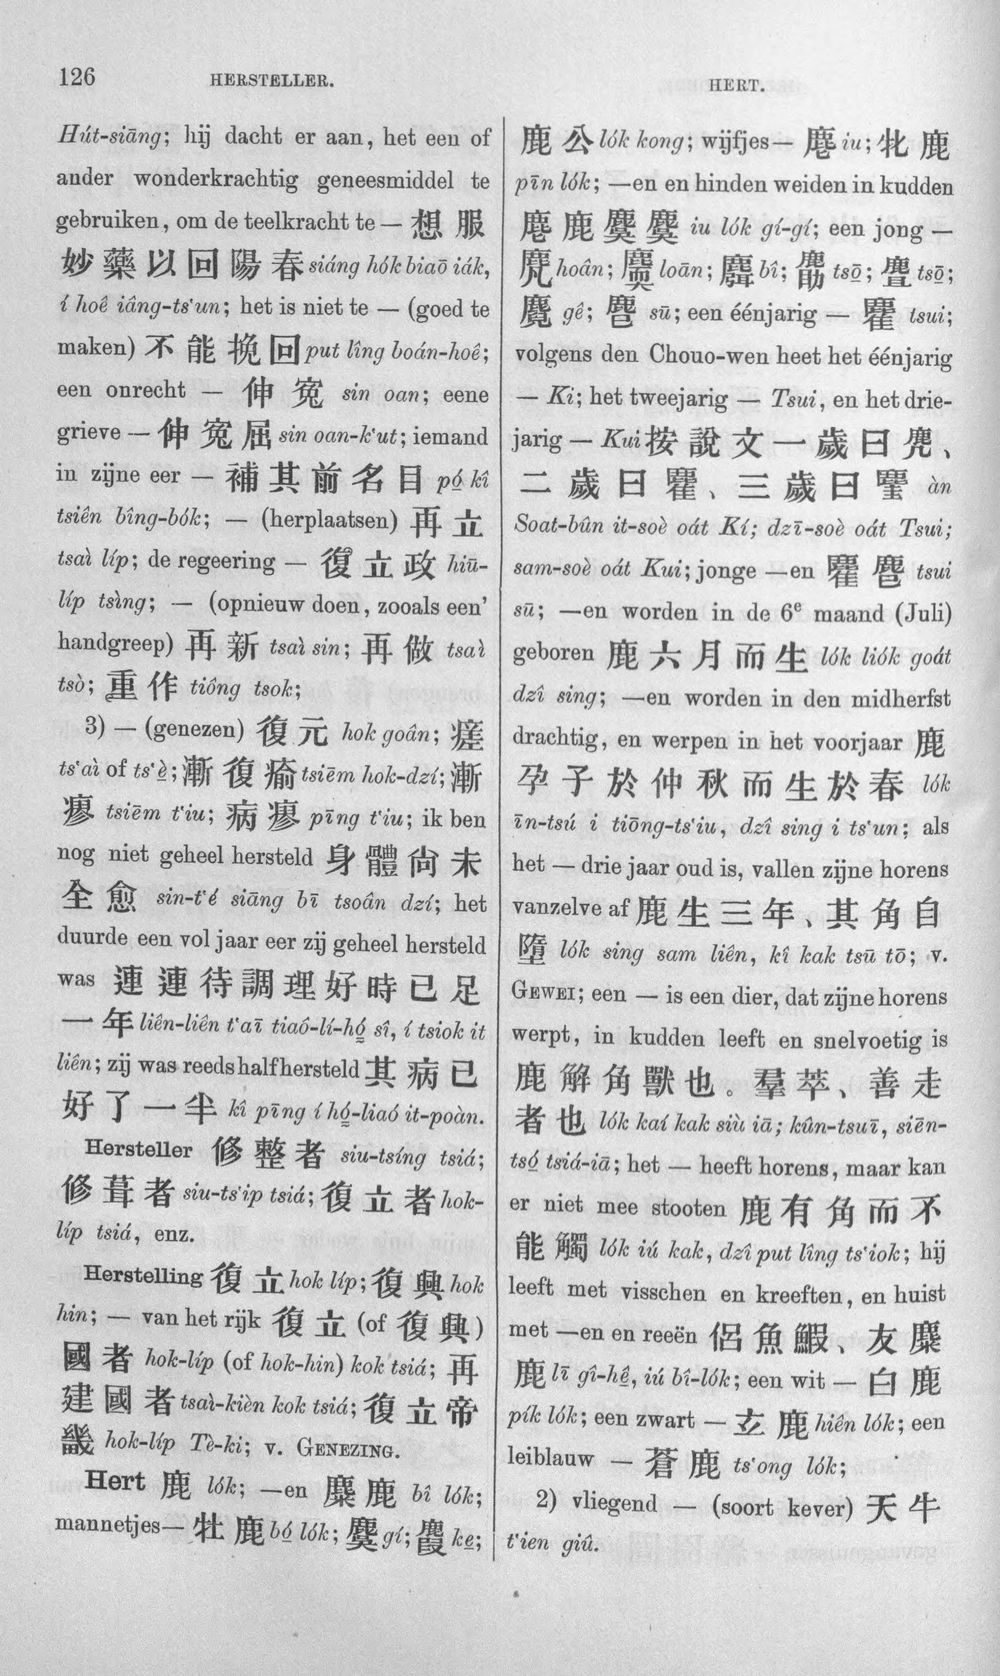 126 HERSTELLER.
HERT.
Hút-siāng; hij dacht er aan, het een of
ander wonderkrachtig geneesmiddel te
gebruiken, om de teelkracht te — 想 服
妙 藥 以 回 陽 春 siáng hók biaō iák,
í hoê iâng-ts‘un; het is niet te — (goed te
maken) 不 能 挽 回 put lîng boán-hoê;
een onrecht — 伸 寃 sin oan; eene
grieve — 伸 寃 屈 sin oan-k‘ut; iemand
in zijne eer — 補 其 前 名 目 pó kî
tsiên bîng-bók; — (herplaatsen) 再 立
tsaì líp; de regeering — 復 立 政 hiū-
líp tsìng; — (opnieuw doen, zooals een’
handgreep) 再 新 tsaì sin; 再 做 tsaì
tsò; 重 作 tiông tsok;
3) — (genezen) 復 元 hok goân; 瘥
ts‘aì of ts‘è; 漸 復 瘉 tsiēm hok-dzí; 漸
瘳 tsiēm t‘iu; 病 瘳 pīng t‘iu; ik ben
nog niet geheel hersteld 身 體 尙 未
全 愈 sin-t‘é siāng bī tsoân dzí; het
duurde een vol jaar eer zij geheel hersteld
was 連 連 待 調 理 好 時 已 足
一 年 liên-liên t‘aī tiaô-lí-hó sî, í tsiok it
liên; zij was reeds half hersteld 其 病 已
好 了 一 半 kî pīng í hó-liaó it-poàn.
Hersteller 修 整 者 siu-tsíng tsiá;
修 葺 者 siu-ts‘ip tsiá; 復 立 者 hok-
líp tsiá, enz.
Herstelling 復 立 hok líp; 復 興 hok
hin; — van het rijk 復 立 (of 復 興)
國 者 hok-líp (of hok-hin) kok tsiá; 再
建 國 者 tsaì-kièn kok tsiá; 復 立 帝
畿 hok-líp Tè-ki; v. GENEZING.
Hert 鹿 lók; —en 麋 鹿 bî lók;
mannetjes— 牡 鹿 bó lók; 麌 gí; 麚 ke;
鹿 公 lók kong; wijfjes— 麀 iu; 牝 鹿
pīn lók; —en en hinden weiden in kudden
麀 鹿 麌 麌 iu lók gí-gí; een jong —
麂 hoân; loān; 麛 bî; tsō; tsō;
麑 gê; sū; een éénjarig — tsui;
volgens den Chouo-wen heet het éénjarig
— Ki; het tweejarig — Tsui, en het drie-
jarig — Kui 按 說 文 一 歲 曰 麂、
二 歲 曰 、三 歲 曰 àn
Soat-bûn it-soè oát Kí; dzī-soè oát Tsui;
sam-soè oát Kui; jonge —en tsui
sū; —en worden in de 6e maand (Juli)
geboren 鹿 六 月 而 生 lók liók goát
dzî sing; —en worden in den midherfst
drachtig, en werpen in het voorjaar 鹿
孕 子 於 仲 秋 而 生 於 春 lók
īn-tsú i tiōng-ts‘iu, dzî sing i ts‘un; als
het — drie jaar oud is, vallen zijne horens
vanzelve af 鹿 生 三 年、其 角 自
墮 lók sing sam liên, kî kak tsū tō; v.
GEWEI; een — is een dier, dat zijne horens
werpt, in kudden leeft en snelvoetig is
鹿 解 角 獸 也。羣 萃、善 走
者 也 lók kaí kak siù iā; kûn-tsuī, siēn-
tsó tsiá-iā; het — heeft horens, maar kan
er niet mee stooten 鹿 有 角 而 不
能 觸 lók iú kak, dzî put lîng ts‘iok; hij
leeft met visschen en kreeften, en huist
met —en en reeën 侶 魚 鰕、友 麋
鹿 lī gî-hê, iú bî-lók; een wit — 白 鹿
pík lók; een zwart — 玄 鹿 hiên lók; een
leiblauw — 蒼 鹿 ts‘ong lók;
2) vliegend — (soort kever) 天 牛
t‘ien giû.